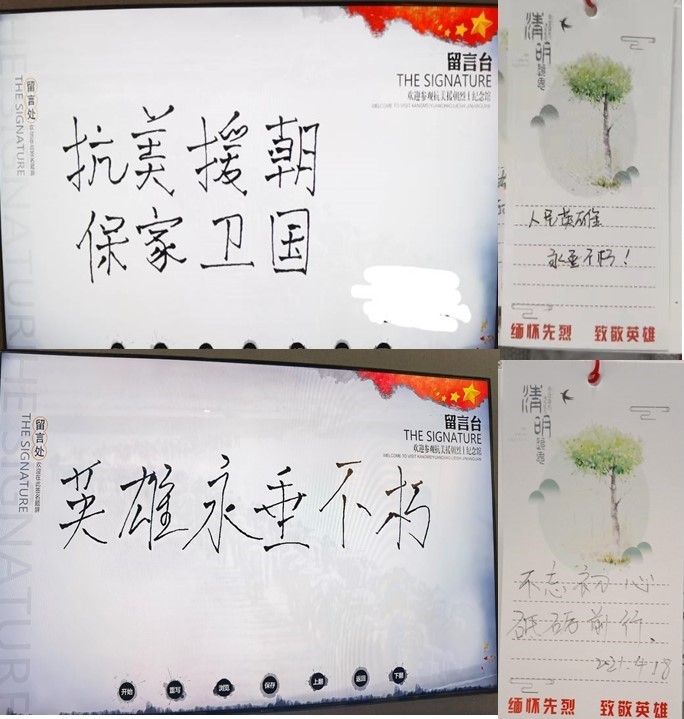 留言台
THE SIGNATURE
欢迎参观抗美援朝烈士纪念馆
留言处
THE SIGNATURE
抗美援朝
保家卫国
清明
人民英雄
永垂不朽!
缅怀先烈 致敬英雄
留言台
THE SIGNATURE
欢迎参观抗美援朝烈士纪念馆
留言处
THE SIGNATURE
英雄永垂不朽
开始 重写 浏览 保存 上翻 返回 下翻
清明
不忘初心
砥砺前行
2021.4.18
缅怀先烈 致敬英雄